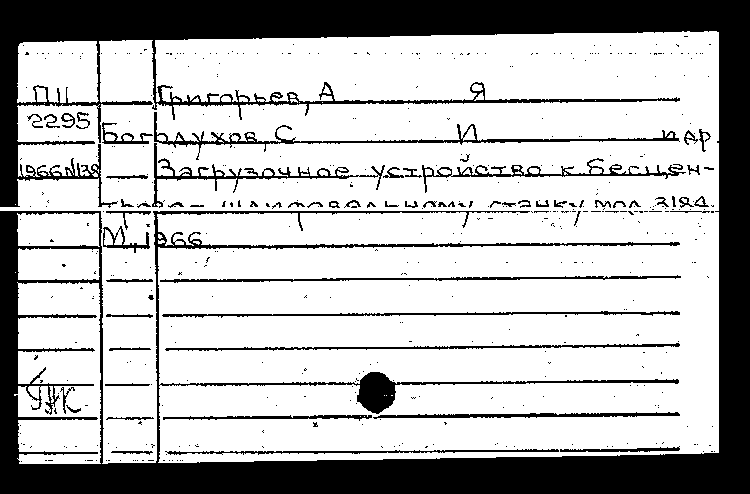 ПІІ Григорьев, А Я
2295
Богодухов, С И и др
1966 №138 Загрузочное устройство к бесцен-
трово-шлифовальному станку мод 3184
М., 1966
ГЖК